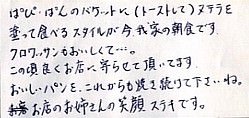 ぱぴ・ぱんのバゲットに(トーストして)ヌテラを
塗って食べるスタイルが今我家の朝食です。
クロワッサンもおいしくて…。
この頃良くお店に寄らせて頂いてます。
おいしいパンを、これからも焼き続けて下さいね。
お店のお姉さんの笑顔ステキです。